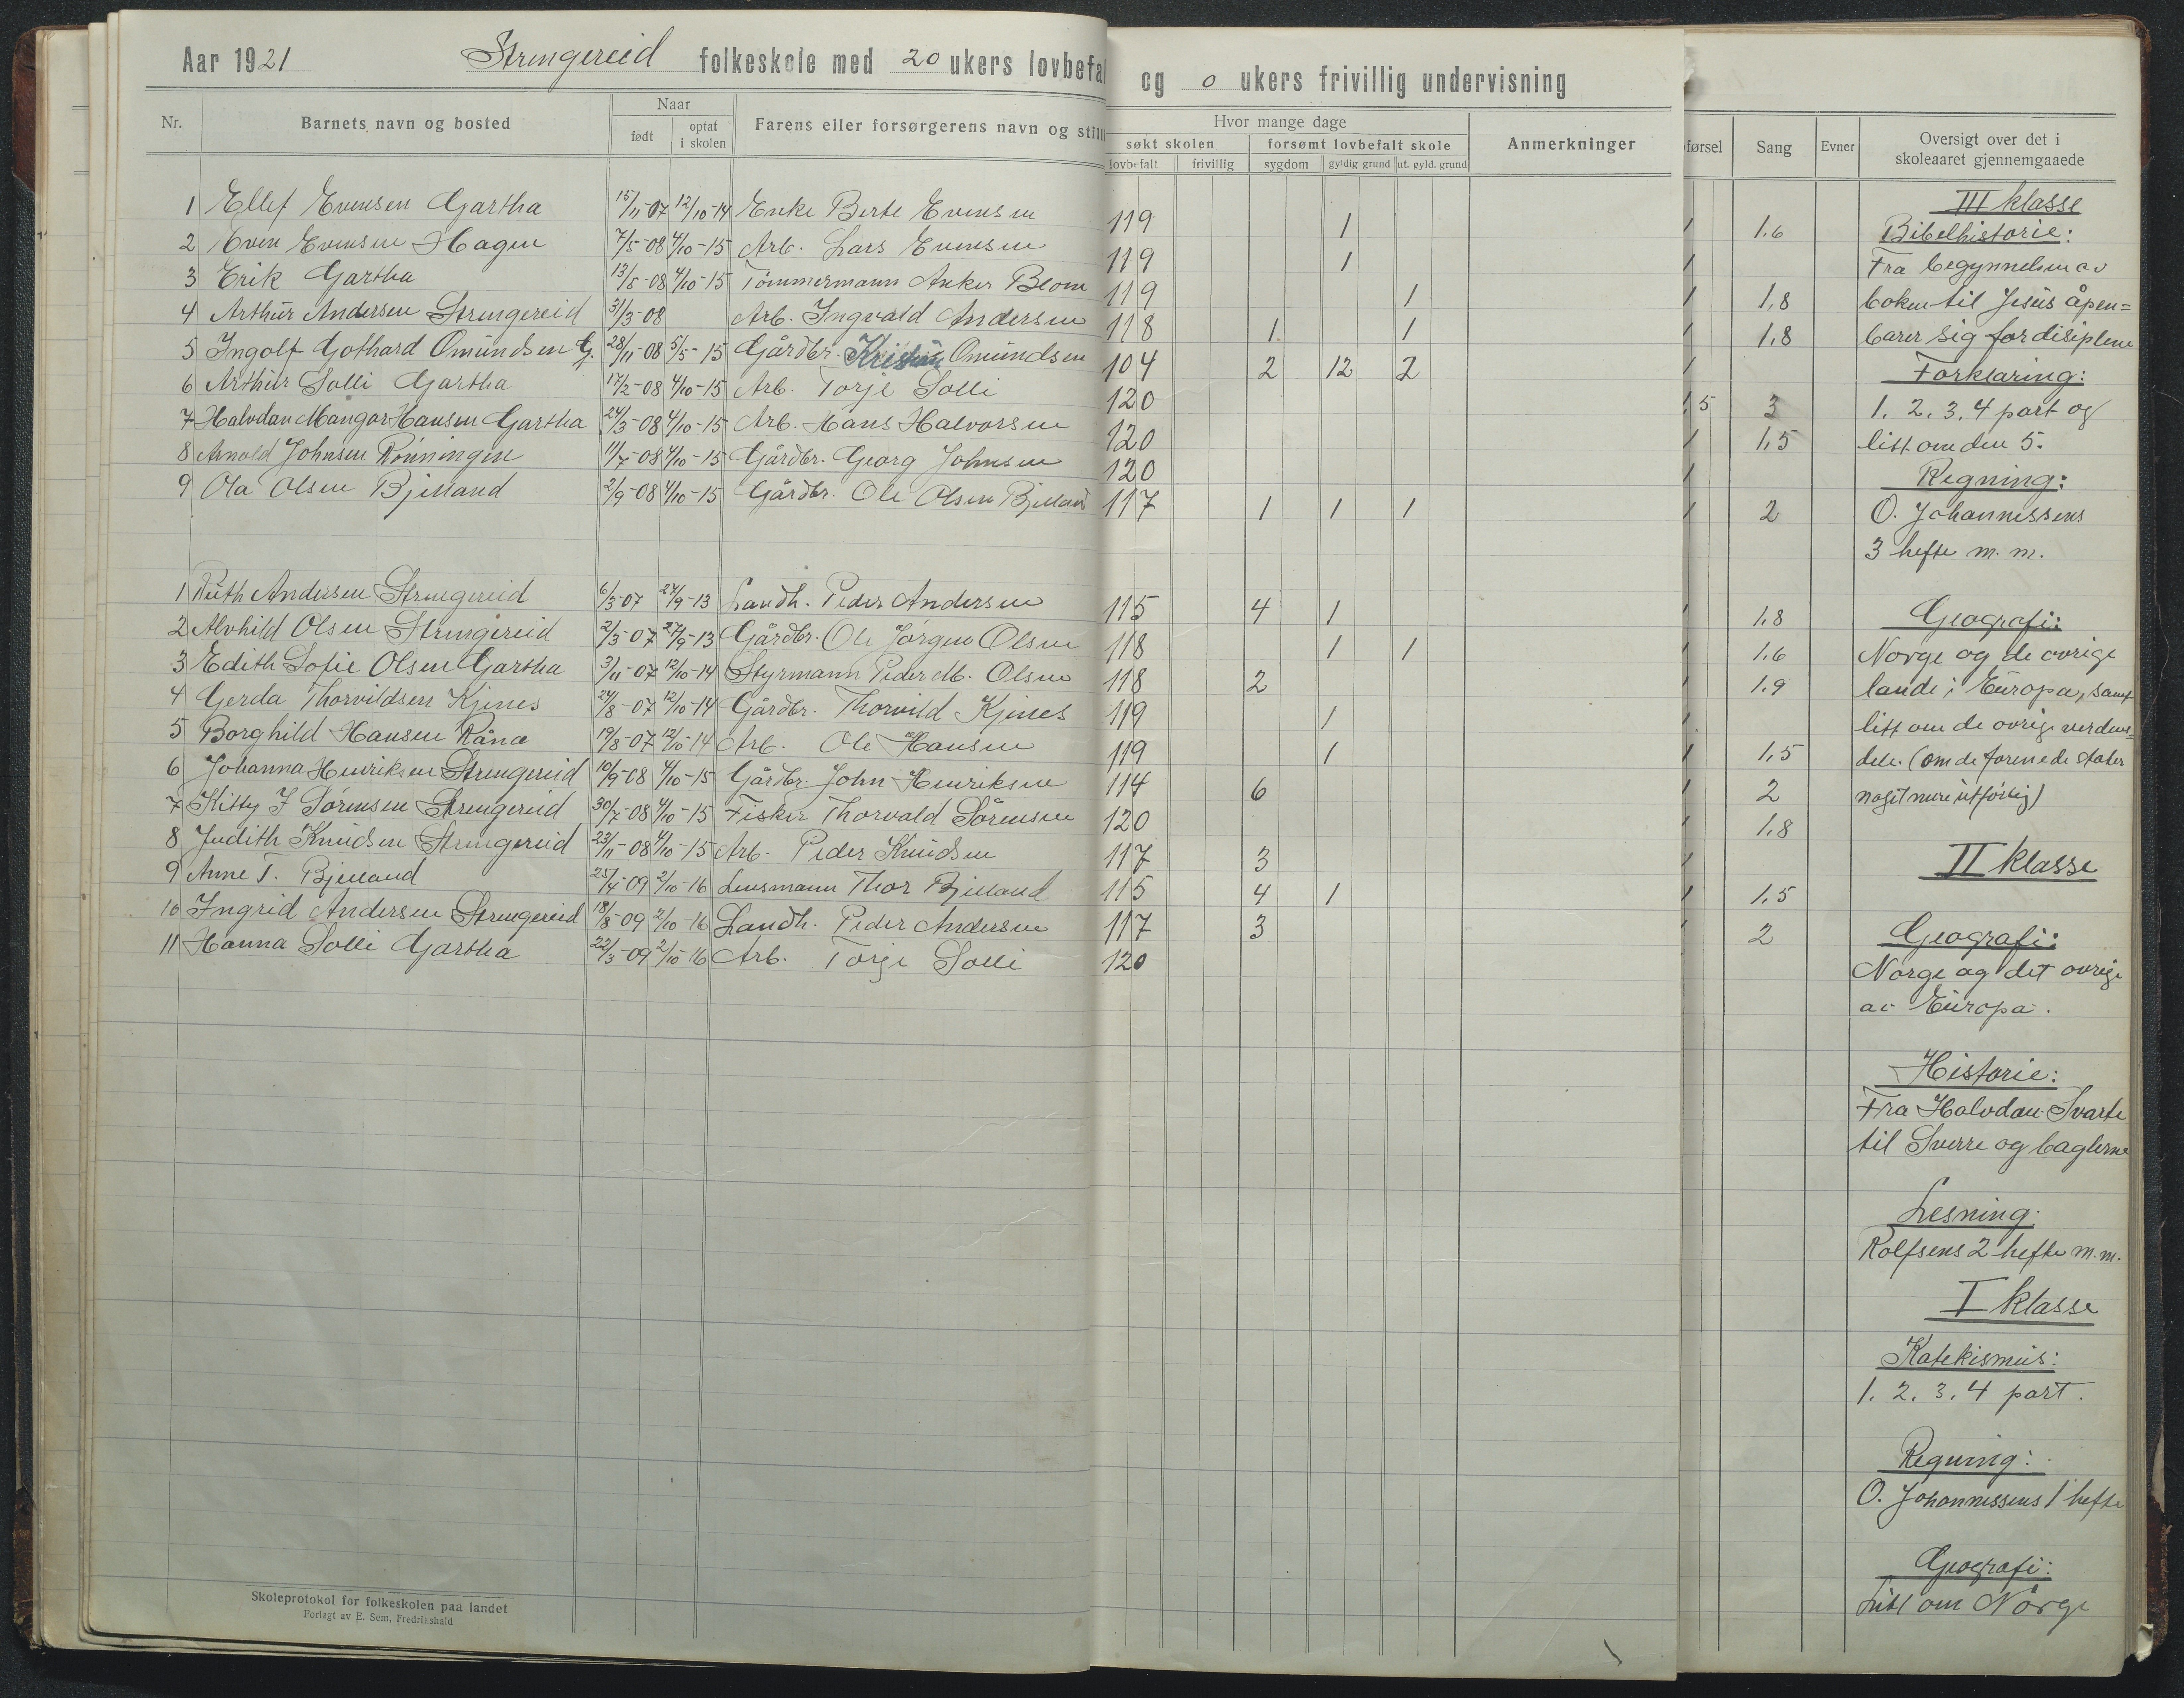 Aar 1921 Strengereid folkeskole med 20 ukers lovbefal og 0 ukers frivillig undervisning
Nr. Barnets navn og bosted Naar født optat i skolen Farens eller forsørgerens navn og still
Hvor mange dage søkt skolen lovbefalt frivillig forsømt lovbefalt skole sygdom gyldig grund ut. gyld. grund Anmerkninger
førsel Sang Evner Oversigt over det i skoleaaret gjennemgaaede
1 Ellef Evensen Gartha 15/11-07 12/10-14 Enke Berte Evensen 119 1
2 Even Evensen Hagen 7/5-08 4/10-15 Arb. Lars Evensen 119 1
3 Erik Gartha 13/5-08 4/10-15 Tømmermann Anker Blom 119 1
4 Arthur Andersen Strengereid 31/3-08 Arb. Ingvald Andersen 118 1 1
5 Ingolf Gothard Omundsen G. 28/11-08 5/5-15 Gårdbr. Kristian Omundsen 104 2 12 2
6 Arthur Solli Gartha 17/2-08 4/10-15 Arb. Torje Solli 120
7 Halvdan Mangor Hansen Gartha 24/3-08 4/10-15 Arb. Hans Halvorsen 120
8 Arnold Johnsen Rønningen 11/7-08 4/10-15 Gårdbr. Georg Johnsen 120
9 Ola Olsen Bjelland 2/9-08 4/10-15 Gårdbr. Ole Olsen Bjelland 117 1 1 1
1 Ruth Andersen Strengereid 6/3-07 27/9-13 Landh. Peder Andersen 115 4 1
2 Alvhild Olsen Strengereid 2/3-07 27/9-13 Gårdbr. Ole Jørgen Olsen 118 1 1
3 Edith Sofie Olsen Gartha 3/11-07 12/10-14 Styrmann Peder M. Olsen 118 2
4 Gerda Thorvildsen Kjenes 24/8-07 12/10-14 Gårdbr. Thorvild Kjenes 119 1
5 Borghild Hansen Råna 19/8-07 12/10-14 Arb. Ole Hansen 119 1
6 Johanna Henriksen Strengereid 10/9-08 4/10-15 Gårdbr. John Henriksen 114 6
7 Kitty J Sørensen Strengereid 30/7-08 4/10-15 Fisker Thorvald Sørensen 120
8 Judith Knudsen Strengereid 23/11-08 4/10-15 Arb. Peder Knudsen 117 3
9 Anne T. Bjelland 25/4-09 2/10-16 Lensmann Thor Bjelland 115 4 1
10 Ingrid Andersen Strengereid 18/8-09 2/10-16 Landh. Peder Andersen 117 3
11 Hanna Solli Gartha 22/3-09 2/10-16 Arb. Torje Solli 120
Skoleprotokol for folkeskolen paa landet
Forlagt av E. Sem, Fredrikshald
1 1.6
1
1 1,8
1 1.8
1
1.5 3
1 1,5
1
1 2
1 1.8
1 1.6
1 1.9
1
1 1,5
1 2
1 1.8
1
1 1.5
1 2
III klasse
Bibelhistorie:
Fra begynnelsen av
boken til Jesus åpen=
barer sig for disiplene
Forklaring:
1. 2. 3. 4 part og
litt om den 5.
Regning:
O. Johannessens
3 hefte m. m.
Geografi:
Norge og de øvrige
lande i Europa, samt
litt om de øvrige verdens=
dele. (om de forenede stater
noget mere utførlig)
II klasse
Geografi:
Norge og det øvrige
av Europa.
Historie:
Fra Halvdan Svarte
til Sverre og baglerne
Lesning:
Rolfsens 2 hefte m. m.
I klasse
Katekismus:
1. 2. 3. 4 part.
Regning:
O. Johannessens 1 hefte
Geografi:
Litt om Norge